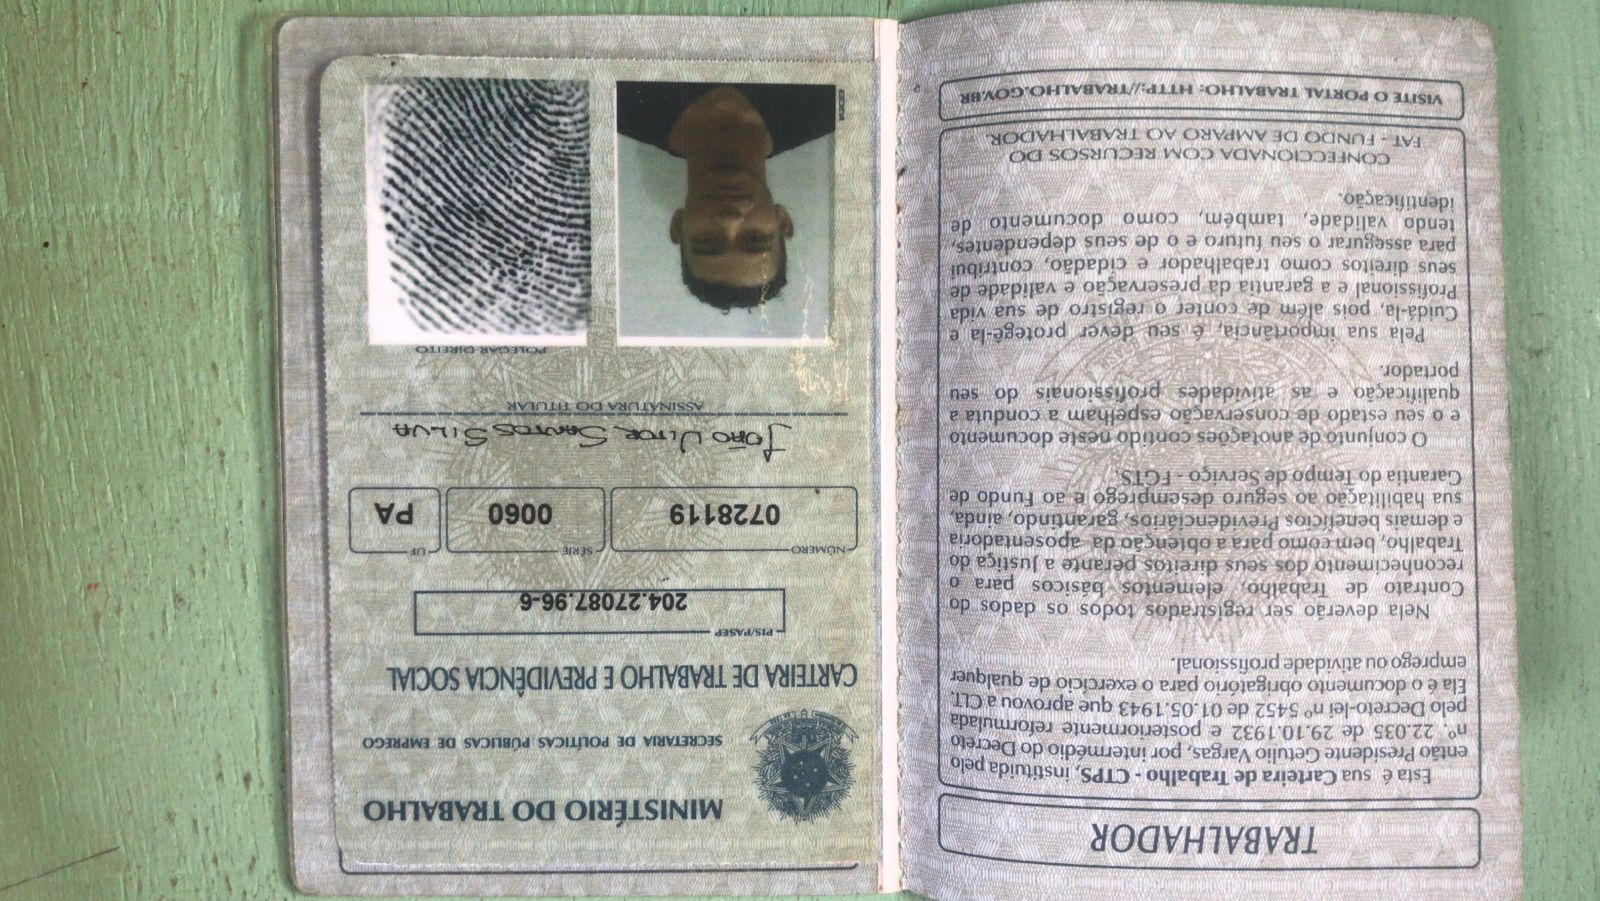 TRABALHADOR
Esta é sua Carteira de Trabalho - CTPS, instituída pelo
então Presidente Getulio Vargas, por intermédio do Decreto
nº. 22.035 de 29.10.1932 e posteriormente reformulada
pelo Decreto-lei nº 5452 de 01.05.1943 que aprovou a CLT.
Ela é o documento obrigatório para o exercício de qualquer
emprego ou atividade profissional.
Nela deverão ser registrados todos os dados do
Contrato de Trabalho, elementos básicos para o
reconhecimento dos seus direitos perante a Justiça do
Trabalho, bem como para a obtenção da aposentadoria
e demais benefícios Previdenciários, garantindo, ainda,
sua habilitação ao seguro desemprego e ao Fundo de
Garantia do Tempo de Serviço - FGTS.
O conjunto de anotações contido neste documento
e o seu estado de conservação espelham a conduta a
qualificação e as atividades profissionais do seu
portador.
Pela sua importância, é seu dever protegê-la e
Cuidá-la, pois além de conter o registro de sua vida
Profissional e a garantia da preservação e validade de
seus direitos como trabalhador e cidadão, contribui
para assegurar o seu futuro e o de seus dependentes,
tendo validade, também, como documento de
identificação.
CONFECCIONADA COM RECURSOS DO
FAT - FUNDO DE AMPARO AO TRABALHADOR.
VISITE O PORTAL TRABALHO: HTTP://TRABALHO.GOV.BR
MINISTÉRIO DO TRABALHO
SECRETARIA DE POLÍTICAS PÚBLICAS DE EMPREGO
CARTEIRA DE TRABALHO E PREVIDÊNCIA SOCIAL
PIS/PASEP
204.27087.96-6
NÚMERO SÉRIE UF
0728119 0060 PA
João Vitor Santos Silva
ASSINATURA DO TITULAR
POLEGAR DIREITO